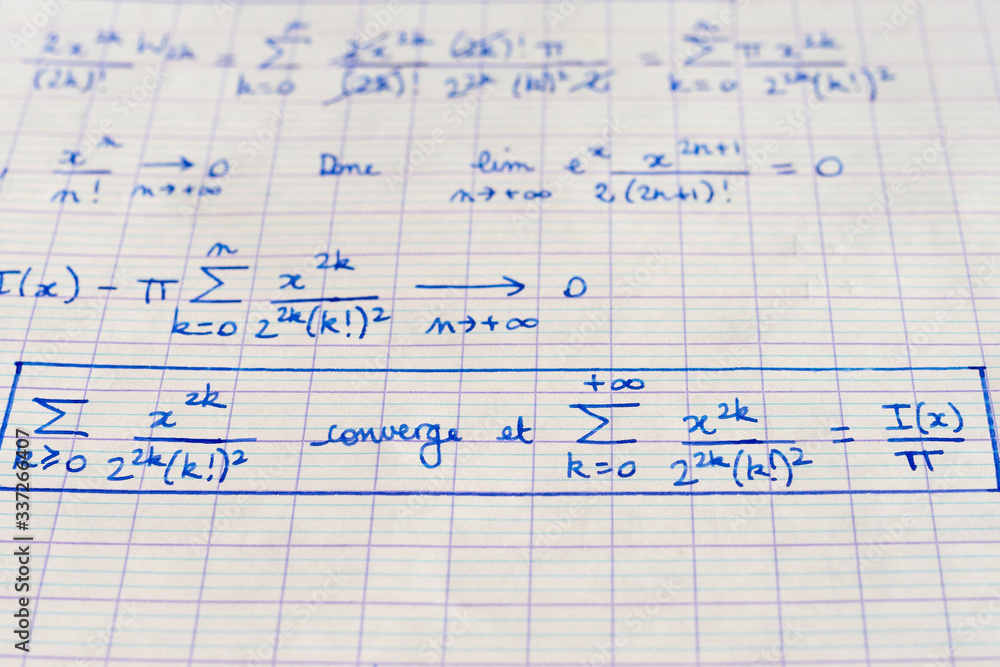 2x^{2k}/(2k)! W_{2k} = ∑_{k=0}^{n} 2x^{2k} (2k)! π / (2k)! 2^{2k} (k!)² 2 = ∑_{k=0}^{n} π x^{2k} / 2^{2k}(k!)²
x^n/n! →_{n→+∞} 0 Donc lim_{n→+∞} e^x x^{2n+1} / 2(2n+1)! = 0
I(x) − π ∑_{k=0}^{n} x^{2k} / 2^{2k}(k!)² →_{n→+∞} 0
∑_{k≥0} x^{2k} / 2^{2k}(k!)² converge et ∑_{k=0}^{+∞} x^{2k} / 2^{2k}(k!)² = I(x)/π
Adobe Stock | #337266407